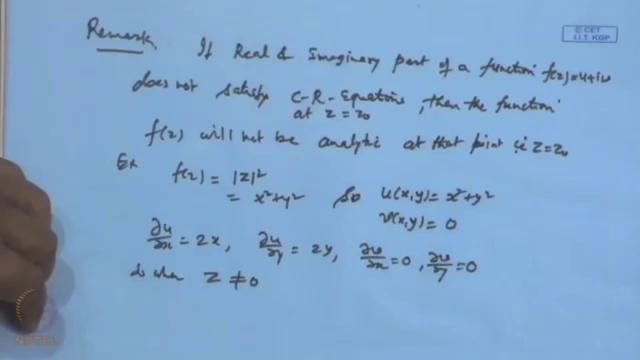 © CET
I.I.T. KGP
Remark If Real & Imaginary part of a function f(z)=u+iv
does not satisfy C-R-Equations, then the function
at z=z₀
f(z) will not be analytic at that point i.e. z=z₀
Ex f(z) = |z|² So u(x,y) = x²+y²
= x²+y² v(x,y) = 0
∂u/∂x = 2x, ∂u/∂y = 2y, ∂v/∂x = 0, ∂v/∂y = 0
So when z ≠ 0
NPTEL